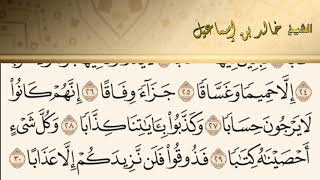 الشيخ خالد بن إسماعيل
٢٤ إِلَّا حَمِيمًا وَغَسَّاقًا ٢٥ جَزَآءً وِفَاقًا ٢٦ إِنَّهُمْ كَانُوا۟
لَا يَرْجُونَ حِسَابًا ٢٧ وَكَذَّبُوا۟ بِـَٔايَـٰتِنَا كِذَّابًا ٢٨ وَكُلَّ شَىْءٍ
أَحْصَيْنَـٰهُ كِتَـٰبًا ٢٩ فَذُوقُوا۟ فَلَن نَّزِيدَكُمْ إِلَّا عَذَابًا ٣٠